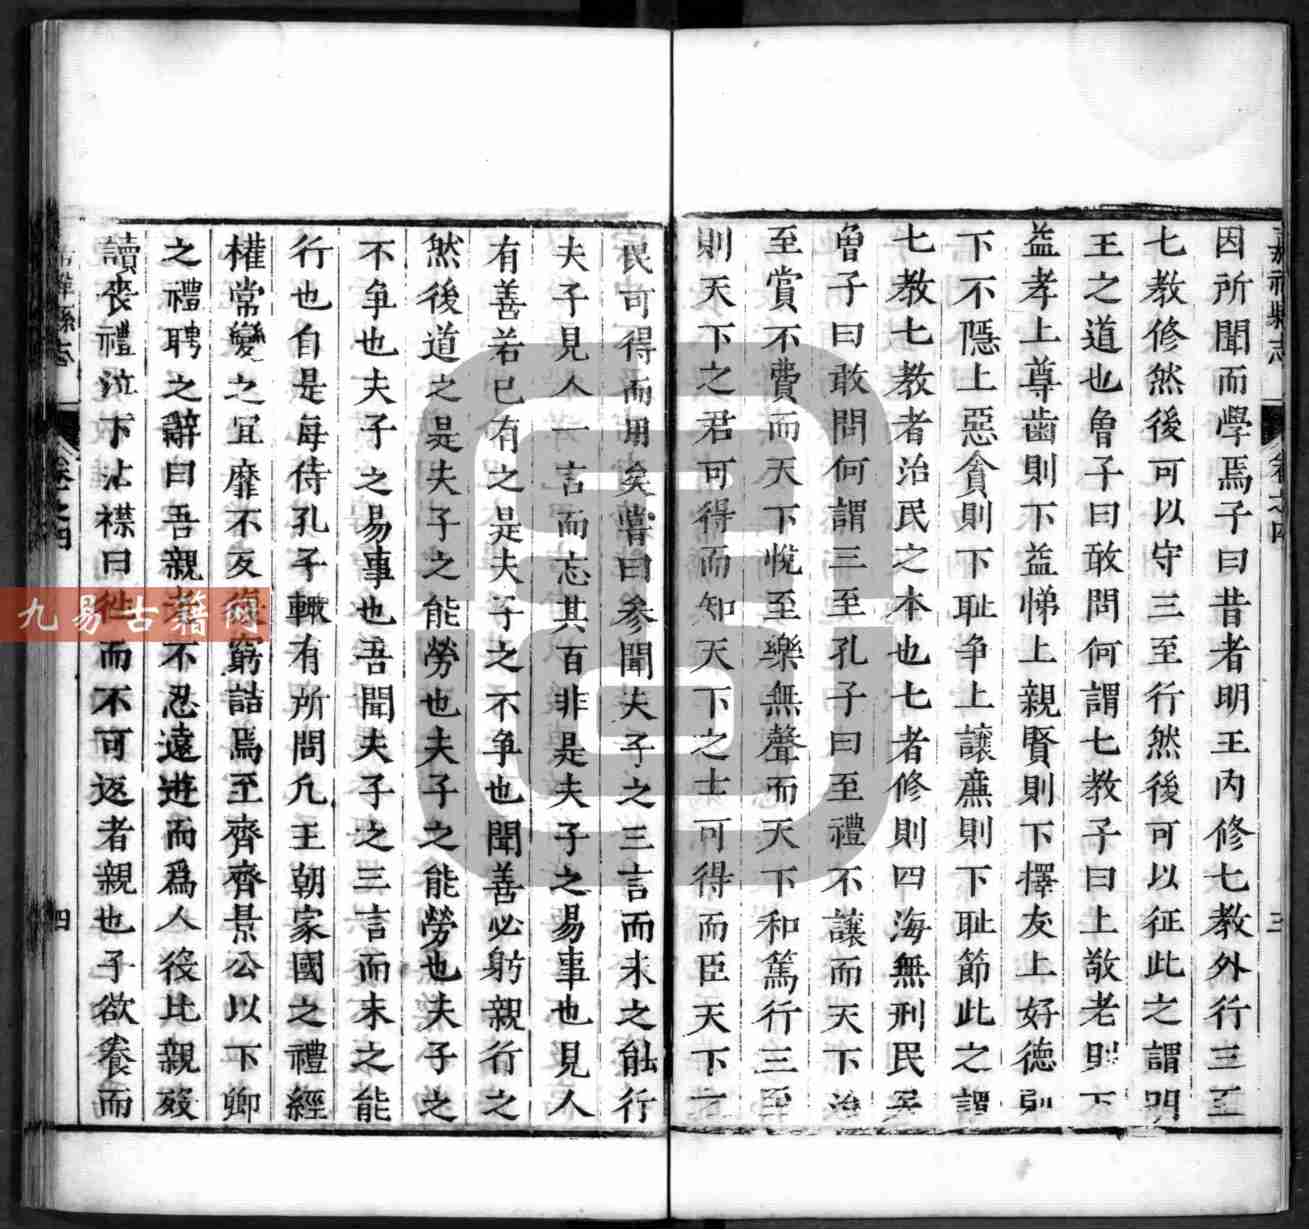 嘉祥縣志
卷之四
三
因所聞而學焉子曰昔者明王內修七教外行三至
七教修然後可以守三至行然後可以征此之謂明
王之道也魯子曰敢問何謂七教子曰上敬老則下
益孝上尊齒則下益悌上親賢則下擇友上好德則
下不隱上惡貪則下耻争上讓㢘則下耻節此之謂
七教七教者治民之本也七者修則四海無刑民矣
魯子曰敢問何謂三至孔子曰至禮不讓而天下治
至賞不費而天下悅至樂無聲而天下和篤行三至
則天下之君可得而知天下之士可得而臣天下之
民可得而用矣嘗曰參聞夫子之三言而未之能行
夫子見人一言而忘其百非是夫子之易事也見人
有善若已有之是夫子之不争也聞善必躬親行之
然後道之是夫子之能勞也夫子之能勞也夫子之
不争也夫子之易事也吾聞夫子之三言而未之能
行也自是每侍孔子輙有所問凢王朝家國之禮經
權常變之宜靡不反復窮詰焉至齊齊景公以下卿
之禮聘之辭曰吾親老不忍遠遊而爲人役比親歿
讀喪禮泣下沾襟曰徃而不可返者親也子欲養而
嘉祥縣志
卷之四
四
九易古籍网